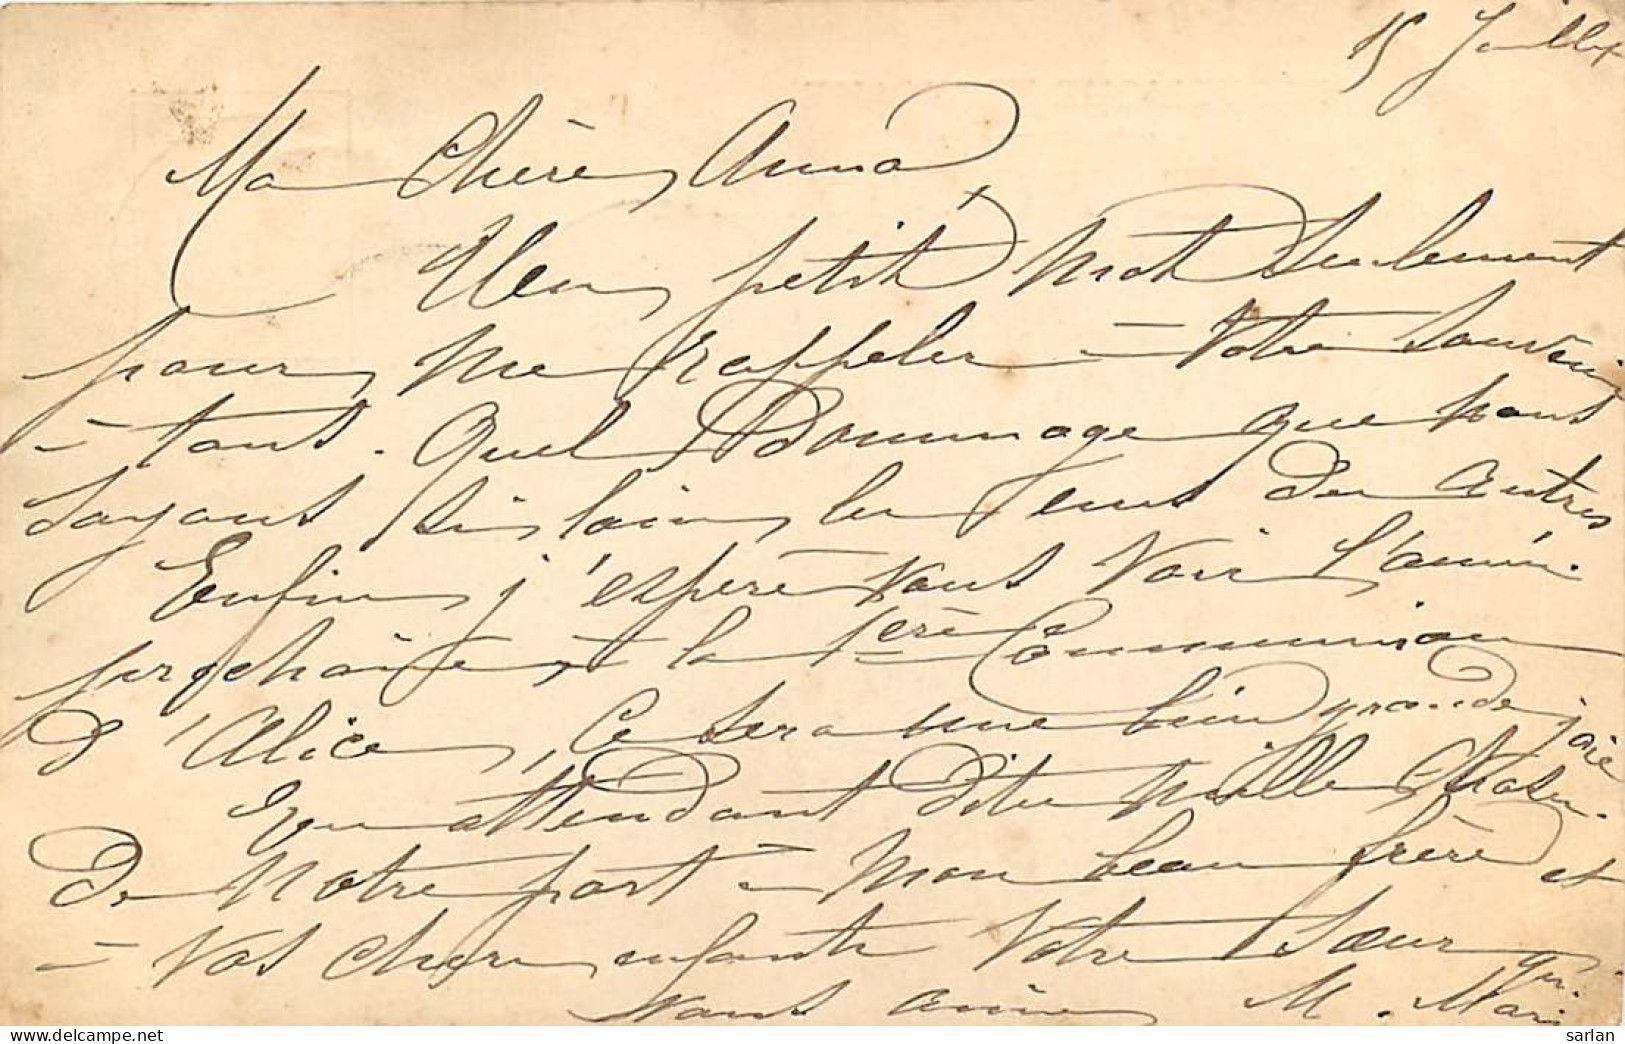 15 Juillet
Ma Chère Anna
Un petit Mot Seulement
pour me rappeler à Votre Souvenir
à tous. Quel Dommage que nous
Soyons si loin les uns des autres
Enfin j'espère vous Voir l'année
prochaine à la 1ère Communion
d'Alice, Ce sera une bien grande joie
En attendant dites mille Choses
de Notre part à Mon beau frère et
à Vos chers enfants Votre Sœur qui
vous aime M. Marie
sarlan